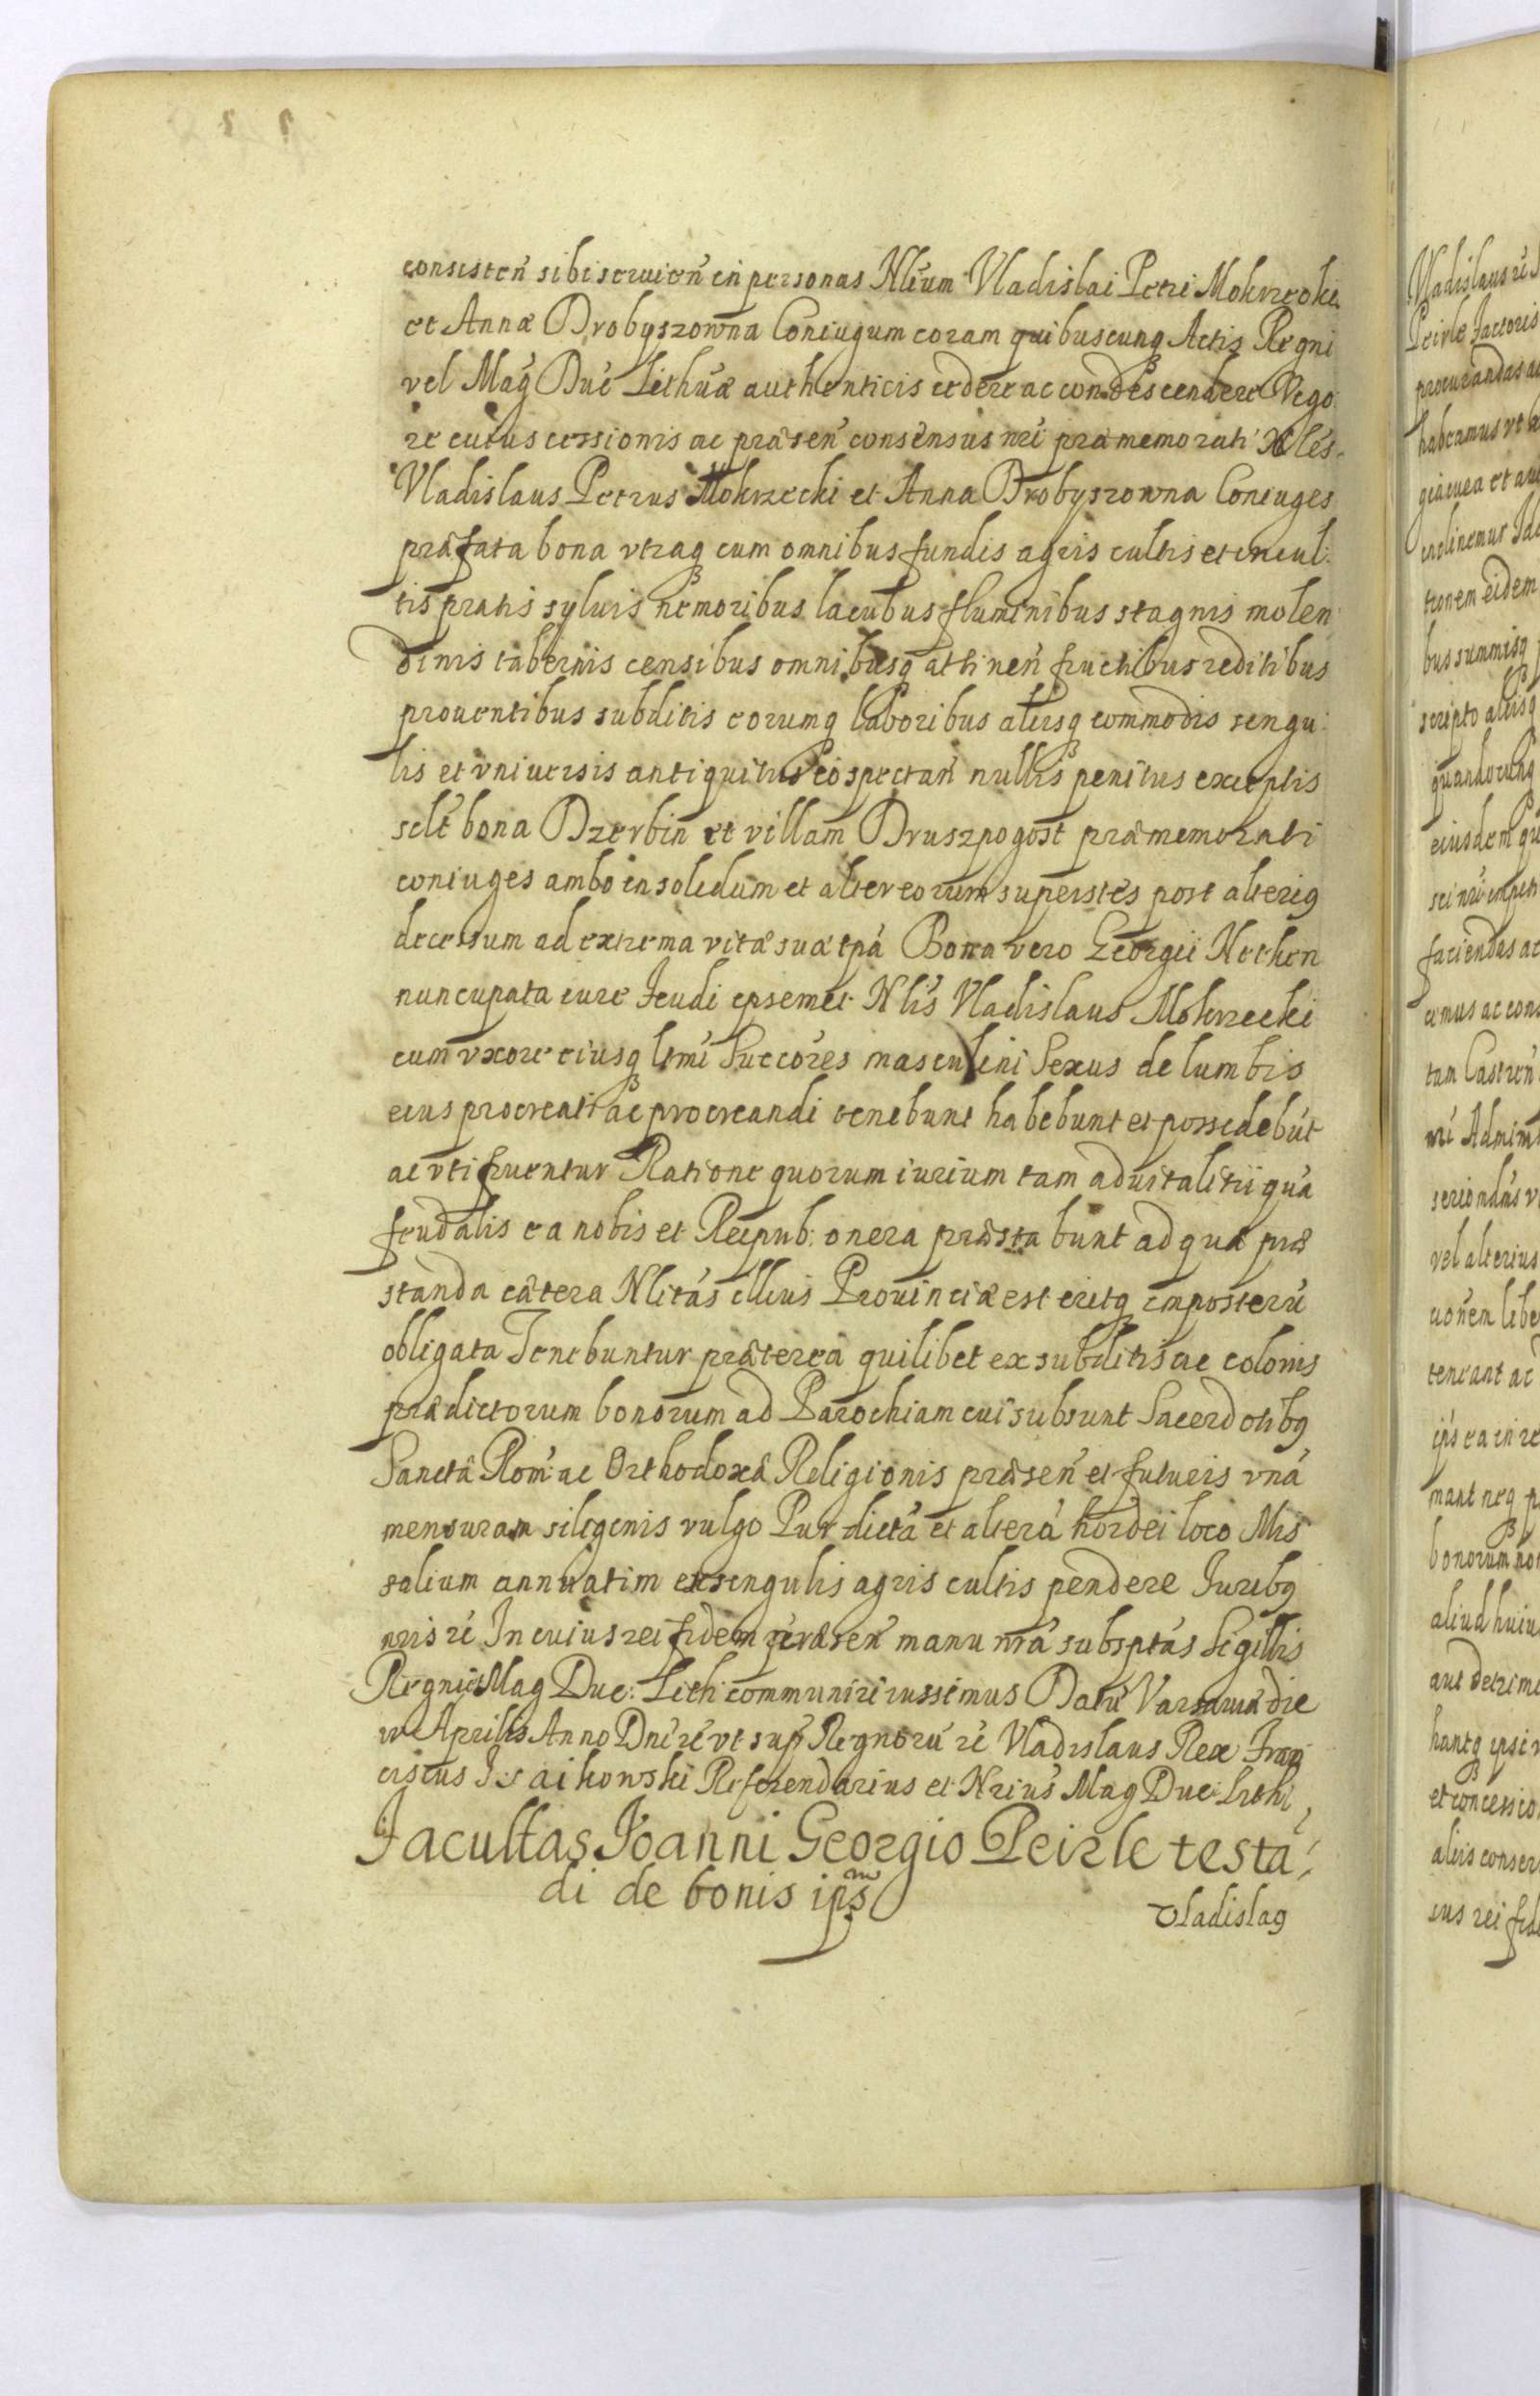 consisten̄ sibi seruien̄ in personas Nlium Vladislai Petri Mokrzecki
et Annæ Drobyszowna Coniugum coram quibuscunq Actis Regni
vel Mag Duc Lithuæ authenticis cedere ac condescendere Vigo
re cuius cessionis ac præsen̄ consensus nri præmemorati Nles
Vladislaus Petrus Mokrzecki et Anna Drobyszowna Coniuges
præfata bona vtraq cum omnibus fundis agris cultis et incul:
tis pratis syluis nemoribus lacubus fluminibus stagnis molen
dinis tabernis censibus omnibusq attinen̄ fructibus reditibus
prouentibus subditis eorumq laboribus alijsq commodis singu:
lis et vniuersis antiquitus eo spectan̄ nullis penitus exceptis
sclt bona Dzerbin et villam Druszpogost præmemorati
coniuges ambo in solidum et alter eorum superstes post alteriq
decessum ad extrema vitæ suæ tpa Bona vero Georgii Nethen
nuncupata iure feudi ipsemet Nlis Vladislaus Mokrzecki
cum vxore eiusq ltmi Succores masculini Sexus de lumbis
eius procreati ac procreandi tenebunt habebunt et possidebūt
ac vti fruentur Ratione quorum iurium tam aduitalitii quā
feudalis ea nobis et Reipub: onera præstabunt ad quæ præ
standa cætera Nlitas illius Prouinciæ est eritq imposterū
obligata Tenebuntur præterea quilibet ex subditis ac colonis
prædictorum bonorum ad Parochiam cui subsunt Sacerdotibq
Sanctæ Rom: ac Orthodoxæ Religionis præsen̄ et futuris vnā
mensuram siliginis vulgo Pur dictā et alterā hordei loco Mis
salium annuatim ex singulis agris cultis pendere Juribq
nris rē In cuius rei fidem præsen̄ manu nrā subsptas Sigillis
Regni et Mag Duc: Lith communiri iussimus Datū Varsauiæ die
Aprilis Anno Dni rē vt sup Regnorū rē Vladislaus Rex Fran
ciscus Isaikowski Referendarius et Nrius Mag Duc: Lith
Facultas Joanni Georgio Peirle testā
di de bonis ips
Vladislaq